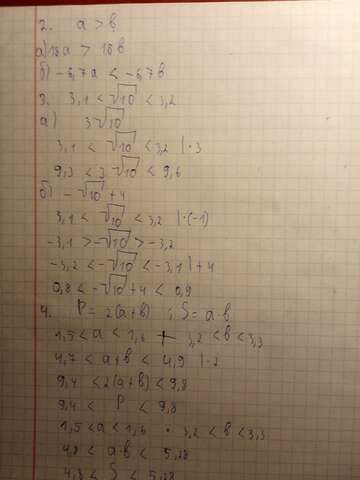 2. a > в
а) 18a > 18в
б) -6,7a < -6,7в
3. 3,1 < √10 < 3,2
а) 3√10
3,1 < √10 < 3,2 | · 3
9,3 < 3√10 < 9,6
б) -√10 + 4
3,1 < √10 < 3,2 | · (-1)
-3,1 > -√10 > -3,2
-3,2 < -√10 < -3,1 | + 4
0,8 < -√10 + 4 < 0,9
4. P = 2(a+в) ; S = a·в
1,5 < a < 1,6 + 3,2 < в < 3,3
4,7 < a+в < 4,9 | · 2
9,4 < 2(a+в) < 9,8
9,4 < P < 9,8
1,5 < a < 1,6 · 3,2 < в < 3,3
4,8 < a·в < 5,28
4,8 < S < 5,28